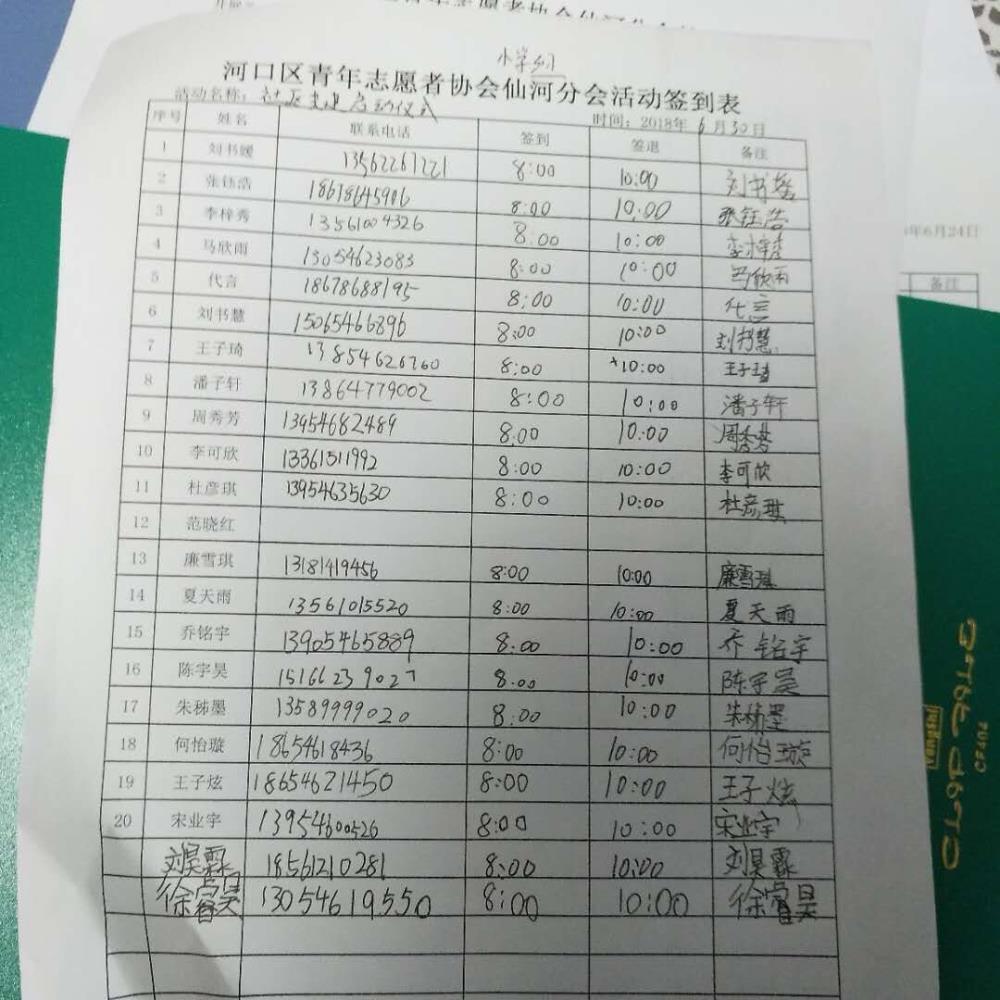 河口区青年志愿者协会仙河分会活动签到表
活动名称：社区党建启动仪式
时间：2018年6月30日
序号 姓名 联系电话 签到 签退 备注
1 刘书媛 13562267221 8:00 10:00 刘书媛
2 张钰浩 18678645906 8:00 10:00 张钰浩
3 李梓秀 13561004326 8:00 10:00 李梓秀
4 马欣雨 13054623083 8:00 10:00 马欣雨
5 代言 18678688195 8:00 10:00 代言
6 刘书慧 15065466896 8:00 10:00 刘书慧
7 王子琦 13854626760 8:00 10:00 王子琦
8 潘子轩 13864779002 8:00 10:00 潘子轩
9 周秀芳 13954682489 8:00 10:00 周秀芳
10 李可欣 13361511992 8:00 10:00 李可欣
11 杜彦琪 13954635630 8:00 10:00 杜彦琪
12 范晓红
13 廉雪琪 13181419456 8:00 10:00 廉雪琪
14 夏天雨 13561015520 8:00 10:00 夏天雨
15 乔铭宇 13905465889 8:00 10:00 乔铭宇
16 陈宇昊 15166239027 8:00 10:00 陈宇昊
17 朱秭墨 13589999020 8:00 10:00 朱秭墨
18 何怡璇 18654618436 8:00 10:00 何怡璇
19 王子炫 18654621450 8:00 10:00 王子炫
20 宋业宇 13954600526 8:00 10:00 宋业宇
刘昊霖 18561210281 8:00 10:00 刘昊霖
徐睿昊 13054619550 8:00 10:00 徐睿昊
年6月24日
备注